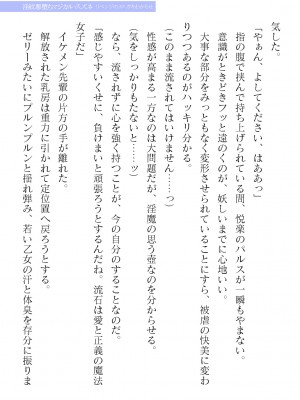 気した。
「やぁん、よしてください、はああっ」
指の腹で挟んで持ち上げられている間、悦楽のパルスが一瞬もやまない。
意識がときどきフッと遠のくのが、妖しいまでに心地いい。
大事な部分をみっともなく変形させられていることにすら、被虐の快美に変わ
りつつあるのがハッキリ分かる。
(このまま流されてはいけません……っ)
性感が高まる一方なのは大問題だが、淫魔の思う壺なのを分からせる。
(気をしっかりもたないと……ッ)
なら、流されずに心を強く持つことが、今の自分のすることなのだ。
「感じやすいくせに、負けまいと頑張ろうとするんだね。流石は愛と正義の魔法
女子だ」
イケメン先輩の片方の手が離れた。
解放された乳房は重力に引かれて定位置へ戻ろうとする。
ゼリーみたいにプルンプルンと揺れ弾み、若い乙女の汗と体臭を存分に振りま